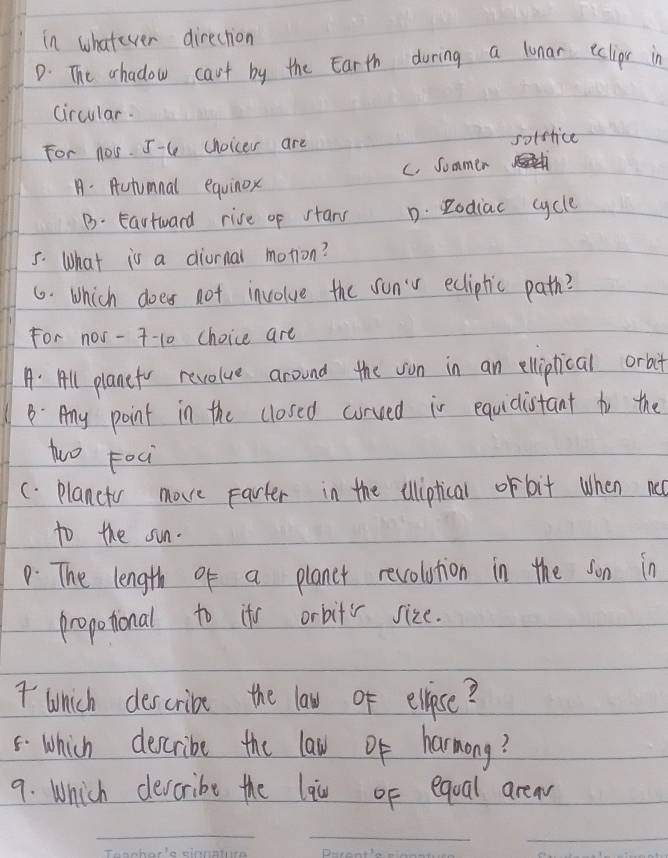 in whatever direction
D. The shadow cast by the Earth during a lunar eclips in
circular.
For nos. 5-6 choices are
A. Autumnal equinox
C. Summer solstice
B. Eastward rise of stars
D. Zodiac cycle
5. What is a diurnal motion?
6. Which does not involve the sun's ecliptic path?
For nos - 7-10 choice are
A. All planets revolve around the sun in an elliptical orbit
B. Any point in the closed curved is equidistant to the
two Foci
C. Planets move Faster in the elliptical orbit when
to the sun.
D. The length of a planet revolution in the son in
propotional to its orbit's size.
7 Which describe the law of ellipse?
8. Which describe the law of harmong?
9. Which describe the law of equal areas
Teacher's signature